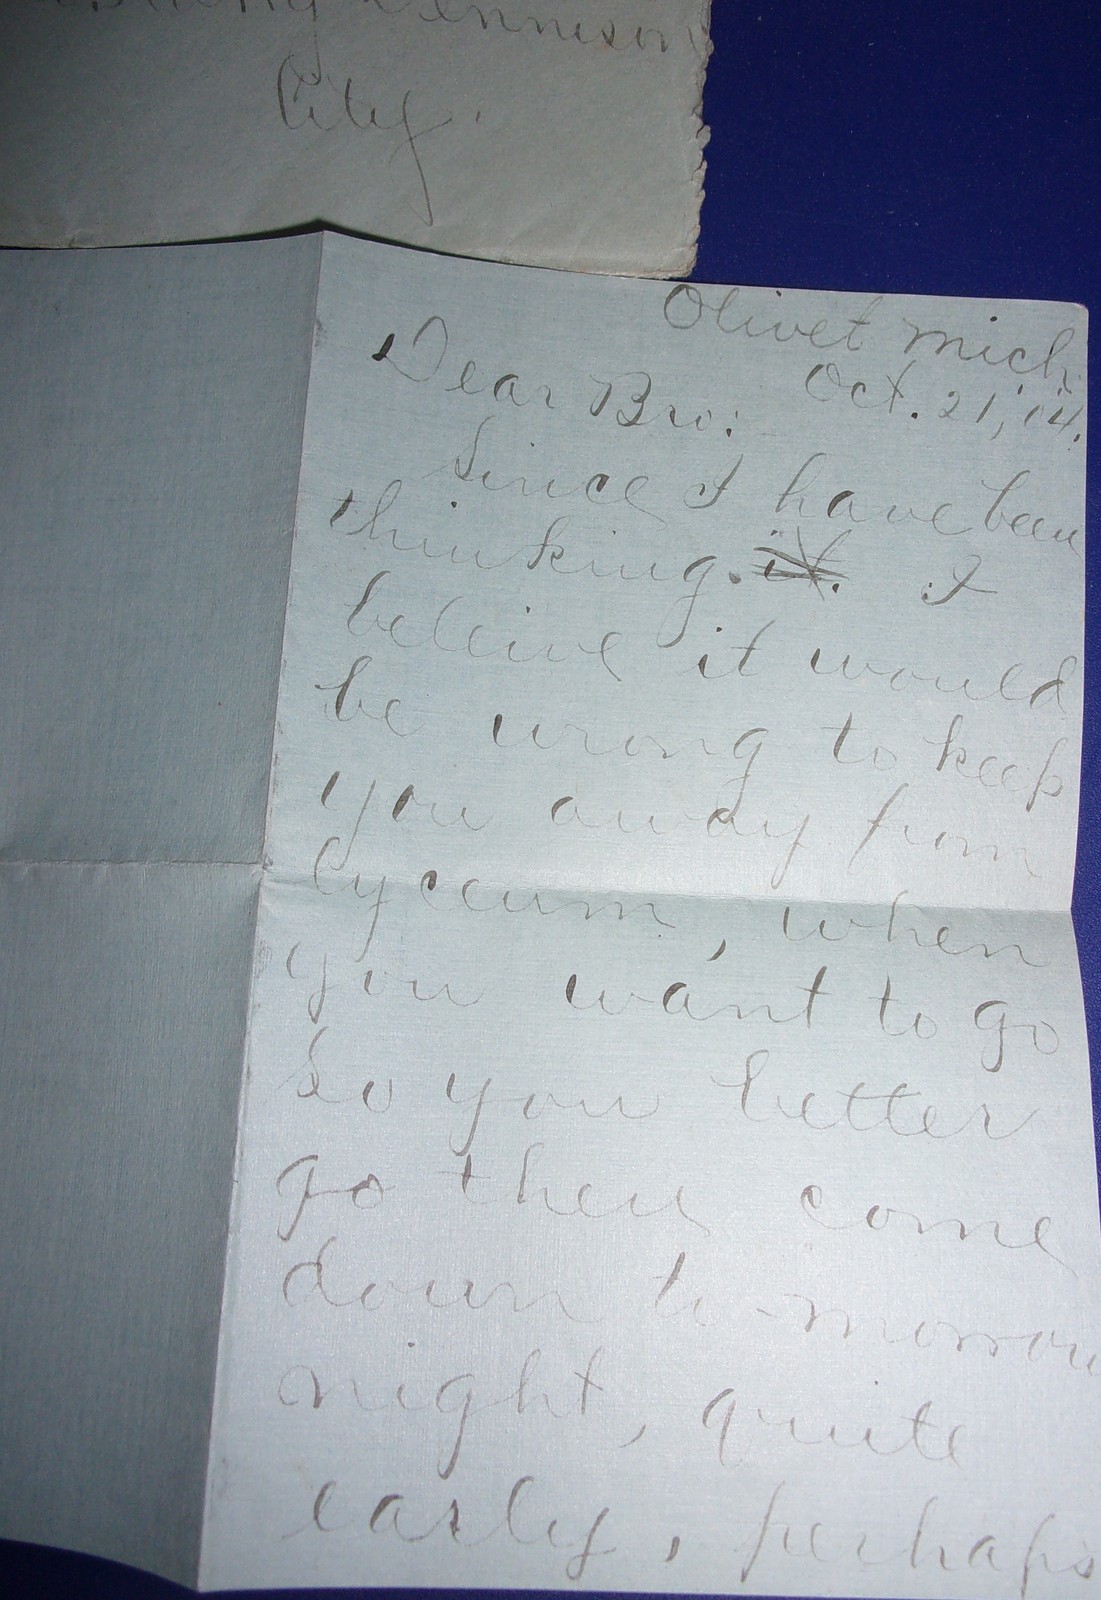 Tennison
City.
Olivet Mich.
Oct. 21, '14.
Dear Bro:
Since I have been
thinking. it. I
beleive it would
be wrong to keep
you away from
lyceum, when
you want to go
So you better
go then come
down to-morrow
night, quite
early, perhaps